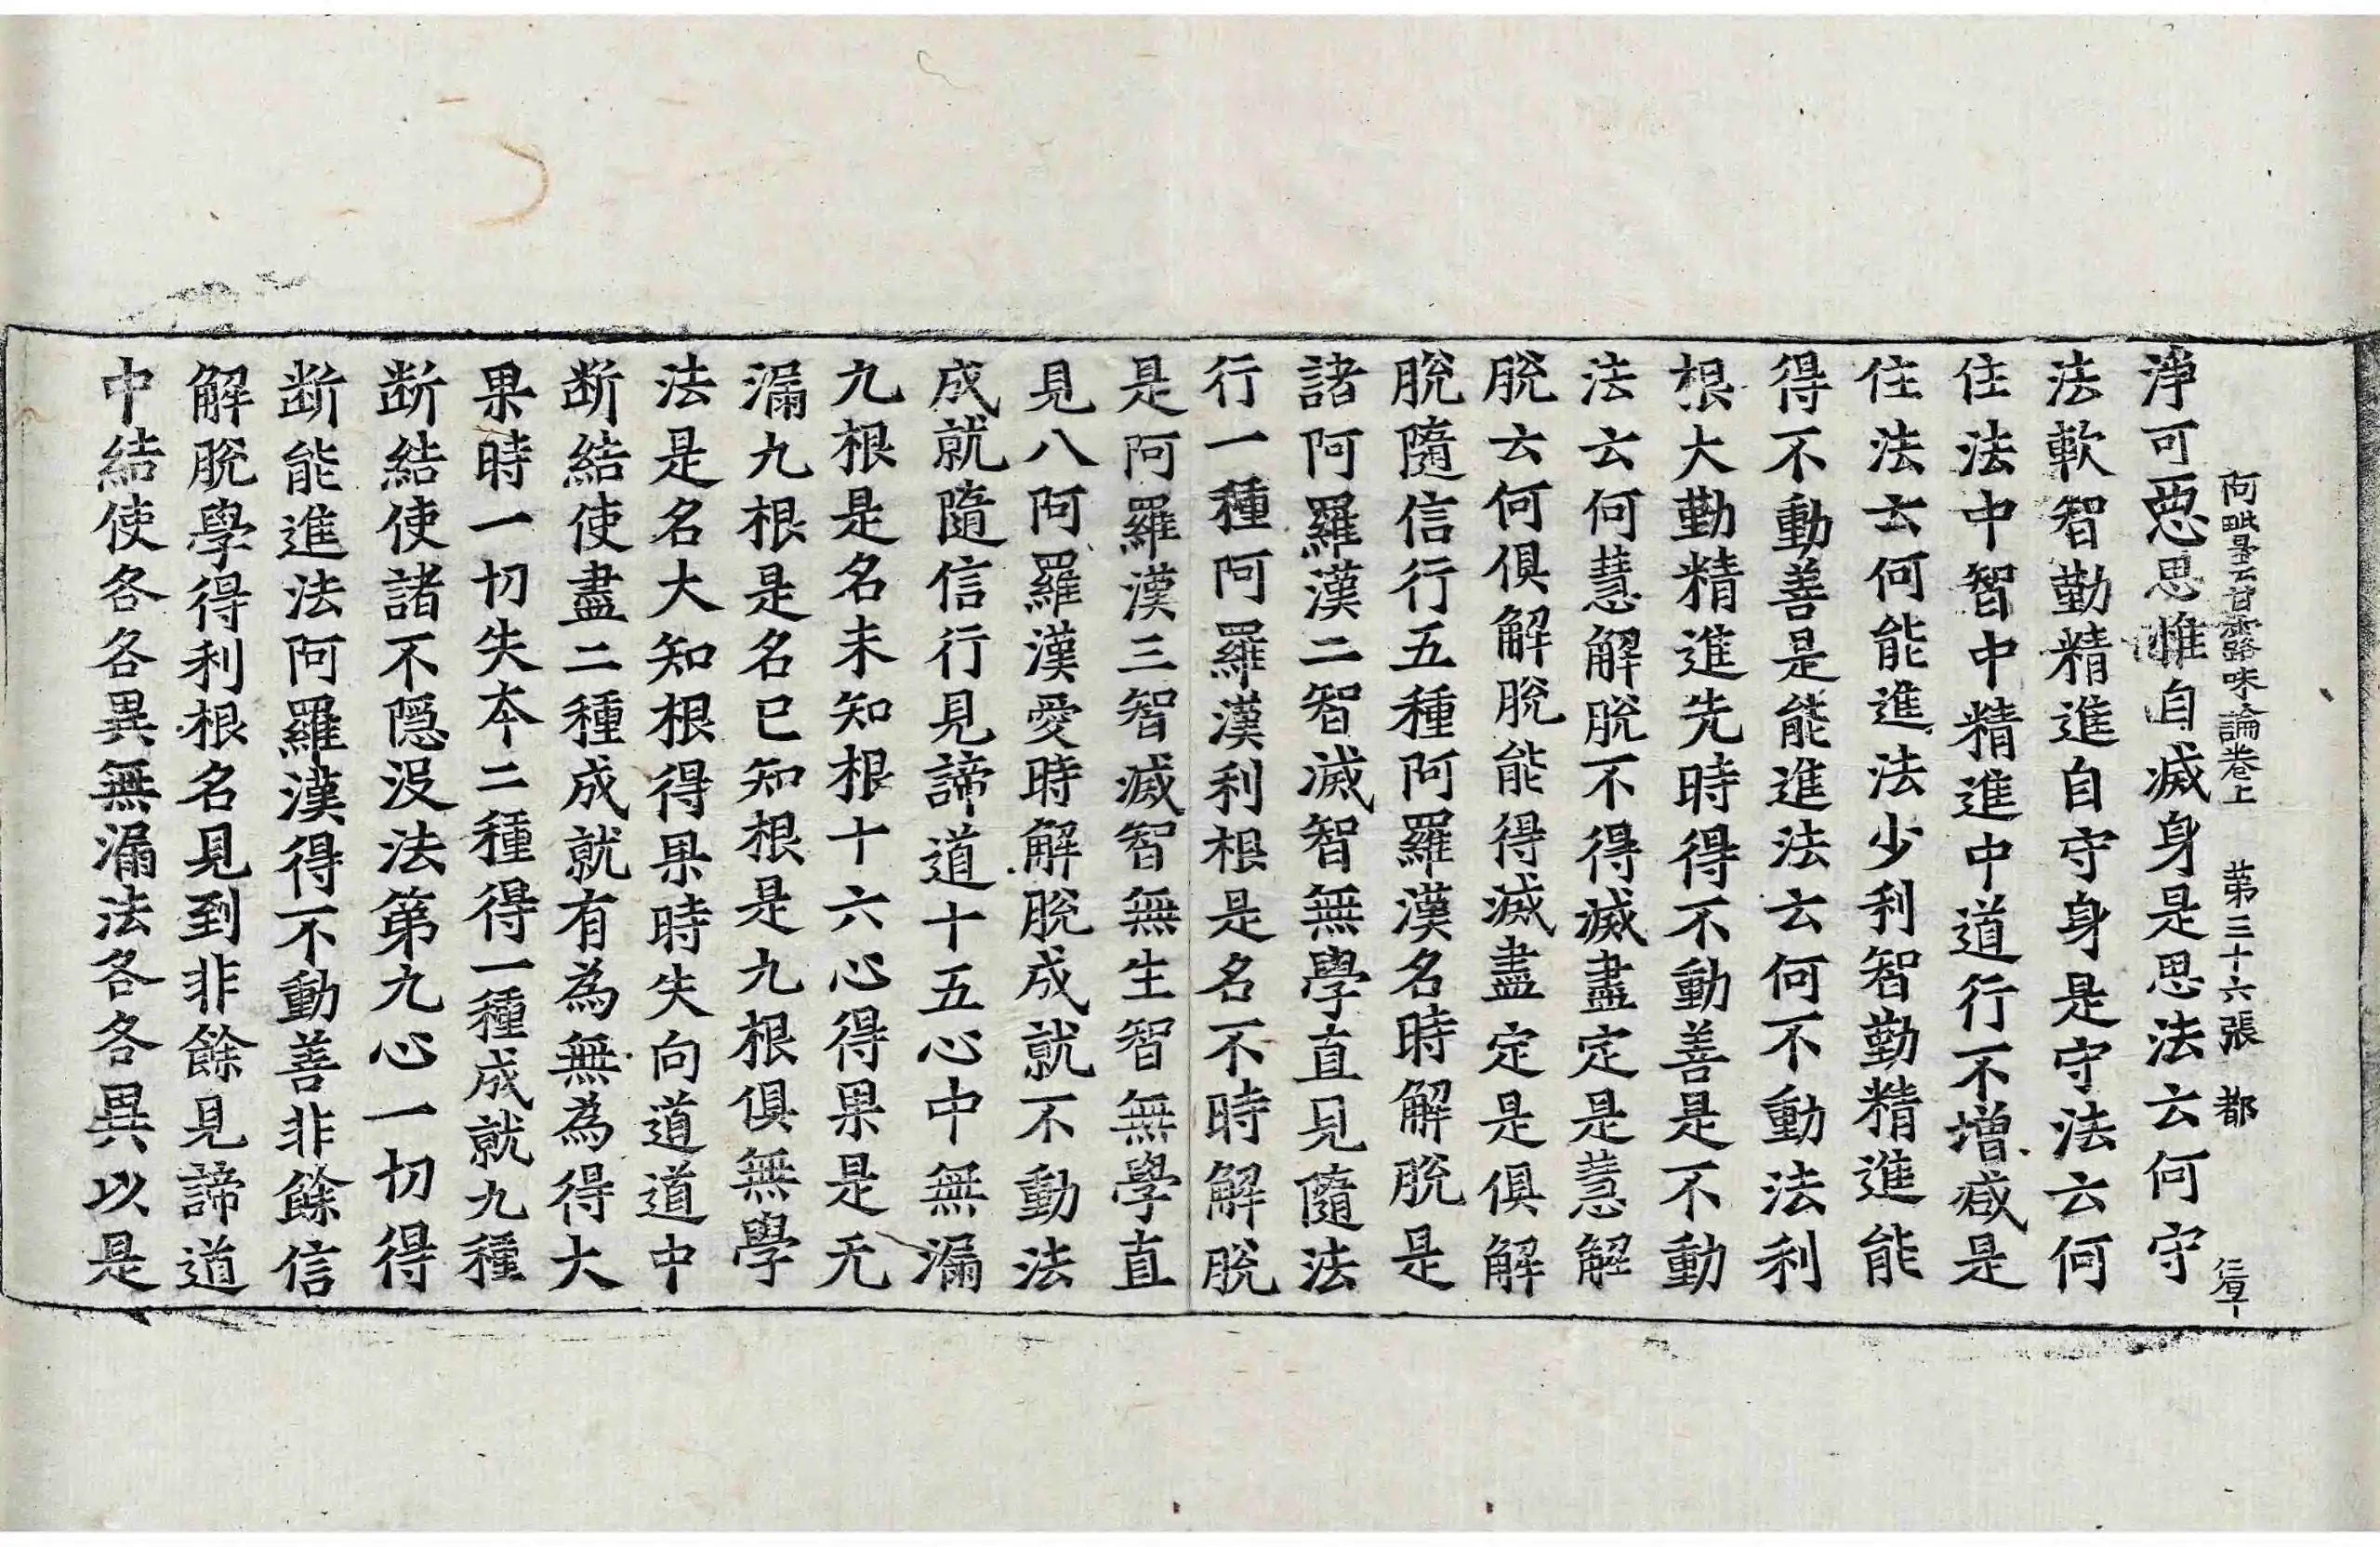 阿毗曇甘露味論卷上　苐三十六張　都
淨可惡思惟自滅身是思法云何守
法軟智勤精進自守身是守法云何
住法中智中精進中道行不增減是
住法云何能進法少利智勤精進能
得不動善是能進法云何不動法利
根大勤精進先時得不動善是不動
法云何慧解脫不得滅盡定是慧解
脫云何俱解脫能得滅盡定是俱解
脫隨信行五種阿羅漢名時解脫是
諸阿羅漢二智滅智無學直見隨法
行一種阿羅漢利根是名不時解脫
是阿羅漢三智滅智無生智無學直
見八阿羅漢愛時解脫成就不動法
成就隨信行見諦道十五心中無漏
九根是名未知根十六心得果是无
漏九根是名已知根是九根俱無學
法是名大知根得果時失向道道中
斷結使盡二種成就有為無為得大
果時一切失本二種得一種成就九種
斷結使諸不隱沒法第九心一切得
斷能進法阿羅漢得不動善非餘信
解脫學得利根名見到非餘見諦道
中結使各各異無漏法各各異以是